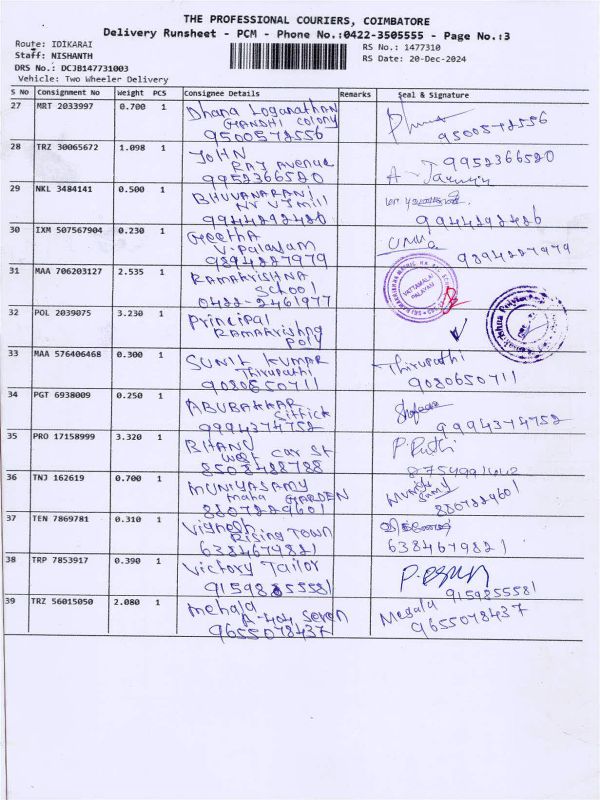 THE PROFESSIONAL COURIERS, COIMBATORE
Delivery Runsheet - PCM - Phone No.:0422-3505555 - Page No.:3
Route: IDIKARAI
RS No.: 1477310
Staff: NISHANTH
RS Date: 20-Dec-2024
DRS No.: DCJB147731003
Vehicle: Two Wheeler Delivery
S No Consignment No Weight PCS Consignee Details Remarks Seal & Signature
27 MRT 2033997 0.700 1 Dhana Loganathan
GANDHI colony
9500572556 9500572556
28 TRZ 30065672 1.098 1 JOHN
RAJ Avenue 9952366520
9952366520
29 NKL 3484141 0.500 1 BHUVANARANI
Nr VJ mill
9944292426 9944292426
30 IXM 507567904 0.230 1 Geetha Uma
V.Palayam
9894227979 9894227979
31 MAA 706203127 2.535 1 RAMAKRISHNA
School
0422-2461977
VATTAMALAI
PALAYAM
32 POL 2039075 3.230 1 Principal
RAMAKRISHNA
Poly
33 MAA 576406468 0.300 1 SUNIL KUMAR Thirupathi
Thirupathi
9080650711 9080650711
34 PGT 6938009 0.250 1 ABUBAKKAR
Sittick
9994374752 9994374752
35 PRO 17158999 3.320 1 BHANU
West car St
8508488788
36 TNJ 162619 0.700 1 MUNIYASAMY
maha GARDEN
8807229601 8807229601
37 TEN 7869781 0.310 1 Vignesh
Rising TOWN
6384679821 6384679821
38 TRP 7853917 0.390 1 Victory Tailor
9159885581 915985581
39 TRZ 56015050 2.080 1 Mehala Megala
A-404 Seven
9655078437 9655078437